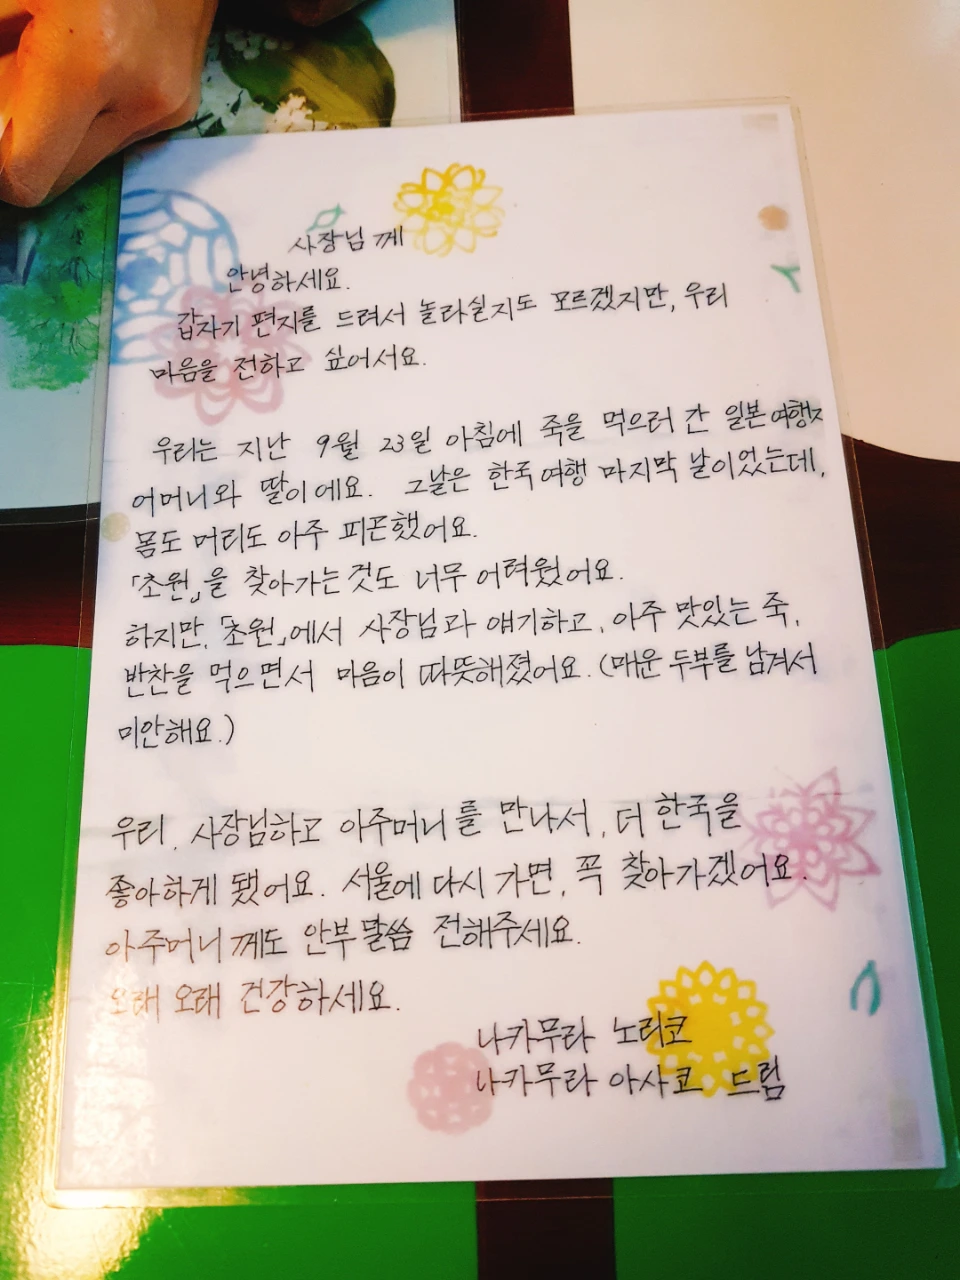 사장님께
안녕하세요.
갑자기 편지를 드려서 놀라실지도 모르겠지만, 우리
마음을 전하고 싶어서요.
우리는 지난 9월 23일 아침에 죽을 먹으러 간 일본여행자
어머니와 딸이에요. 그날은 한국여행 마지막 날이었는데,
몸도 머리도 아주 피곤했어요.
「초원」을 찾아가는것도 너무 어려웠어요.
하지만, 「초원」에서 사장님과 얘기하고, 아주 맛있는 죽,
반찬을 먹으면서 마음이 따뜻해졌어요. (매운 두부를 남겨서
미안해요.)
우리, 사장님하고 아주머니를 만나서, 더 한국을
좋아하게 됐어요. 서울에 다시 가면, 꼭 찾아가겠어요.
아주머니께도 안부말씀 전해주세요.
오래 오래 건강하세요.
나카무라 노리코
나카무라 아사코 드림